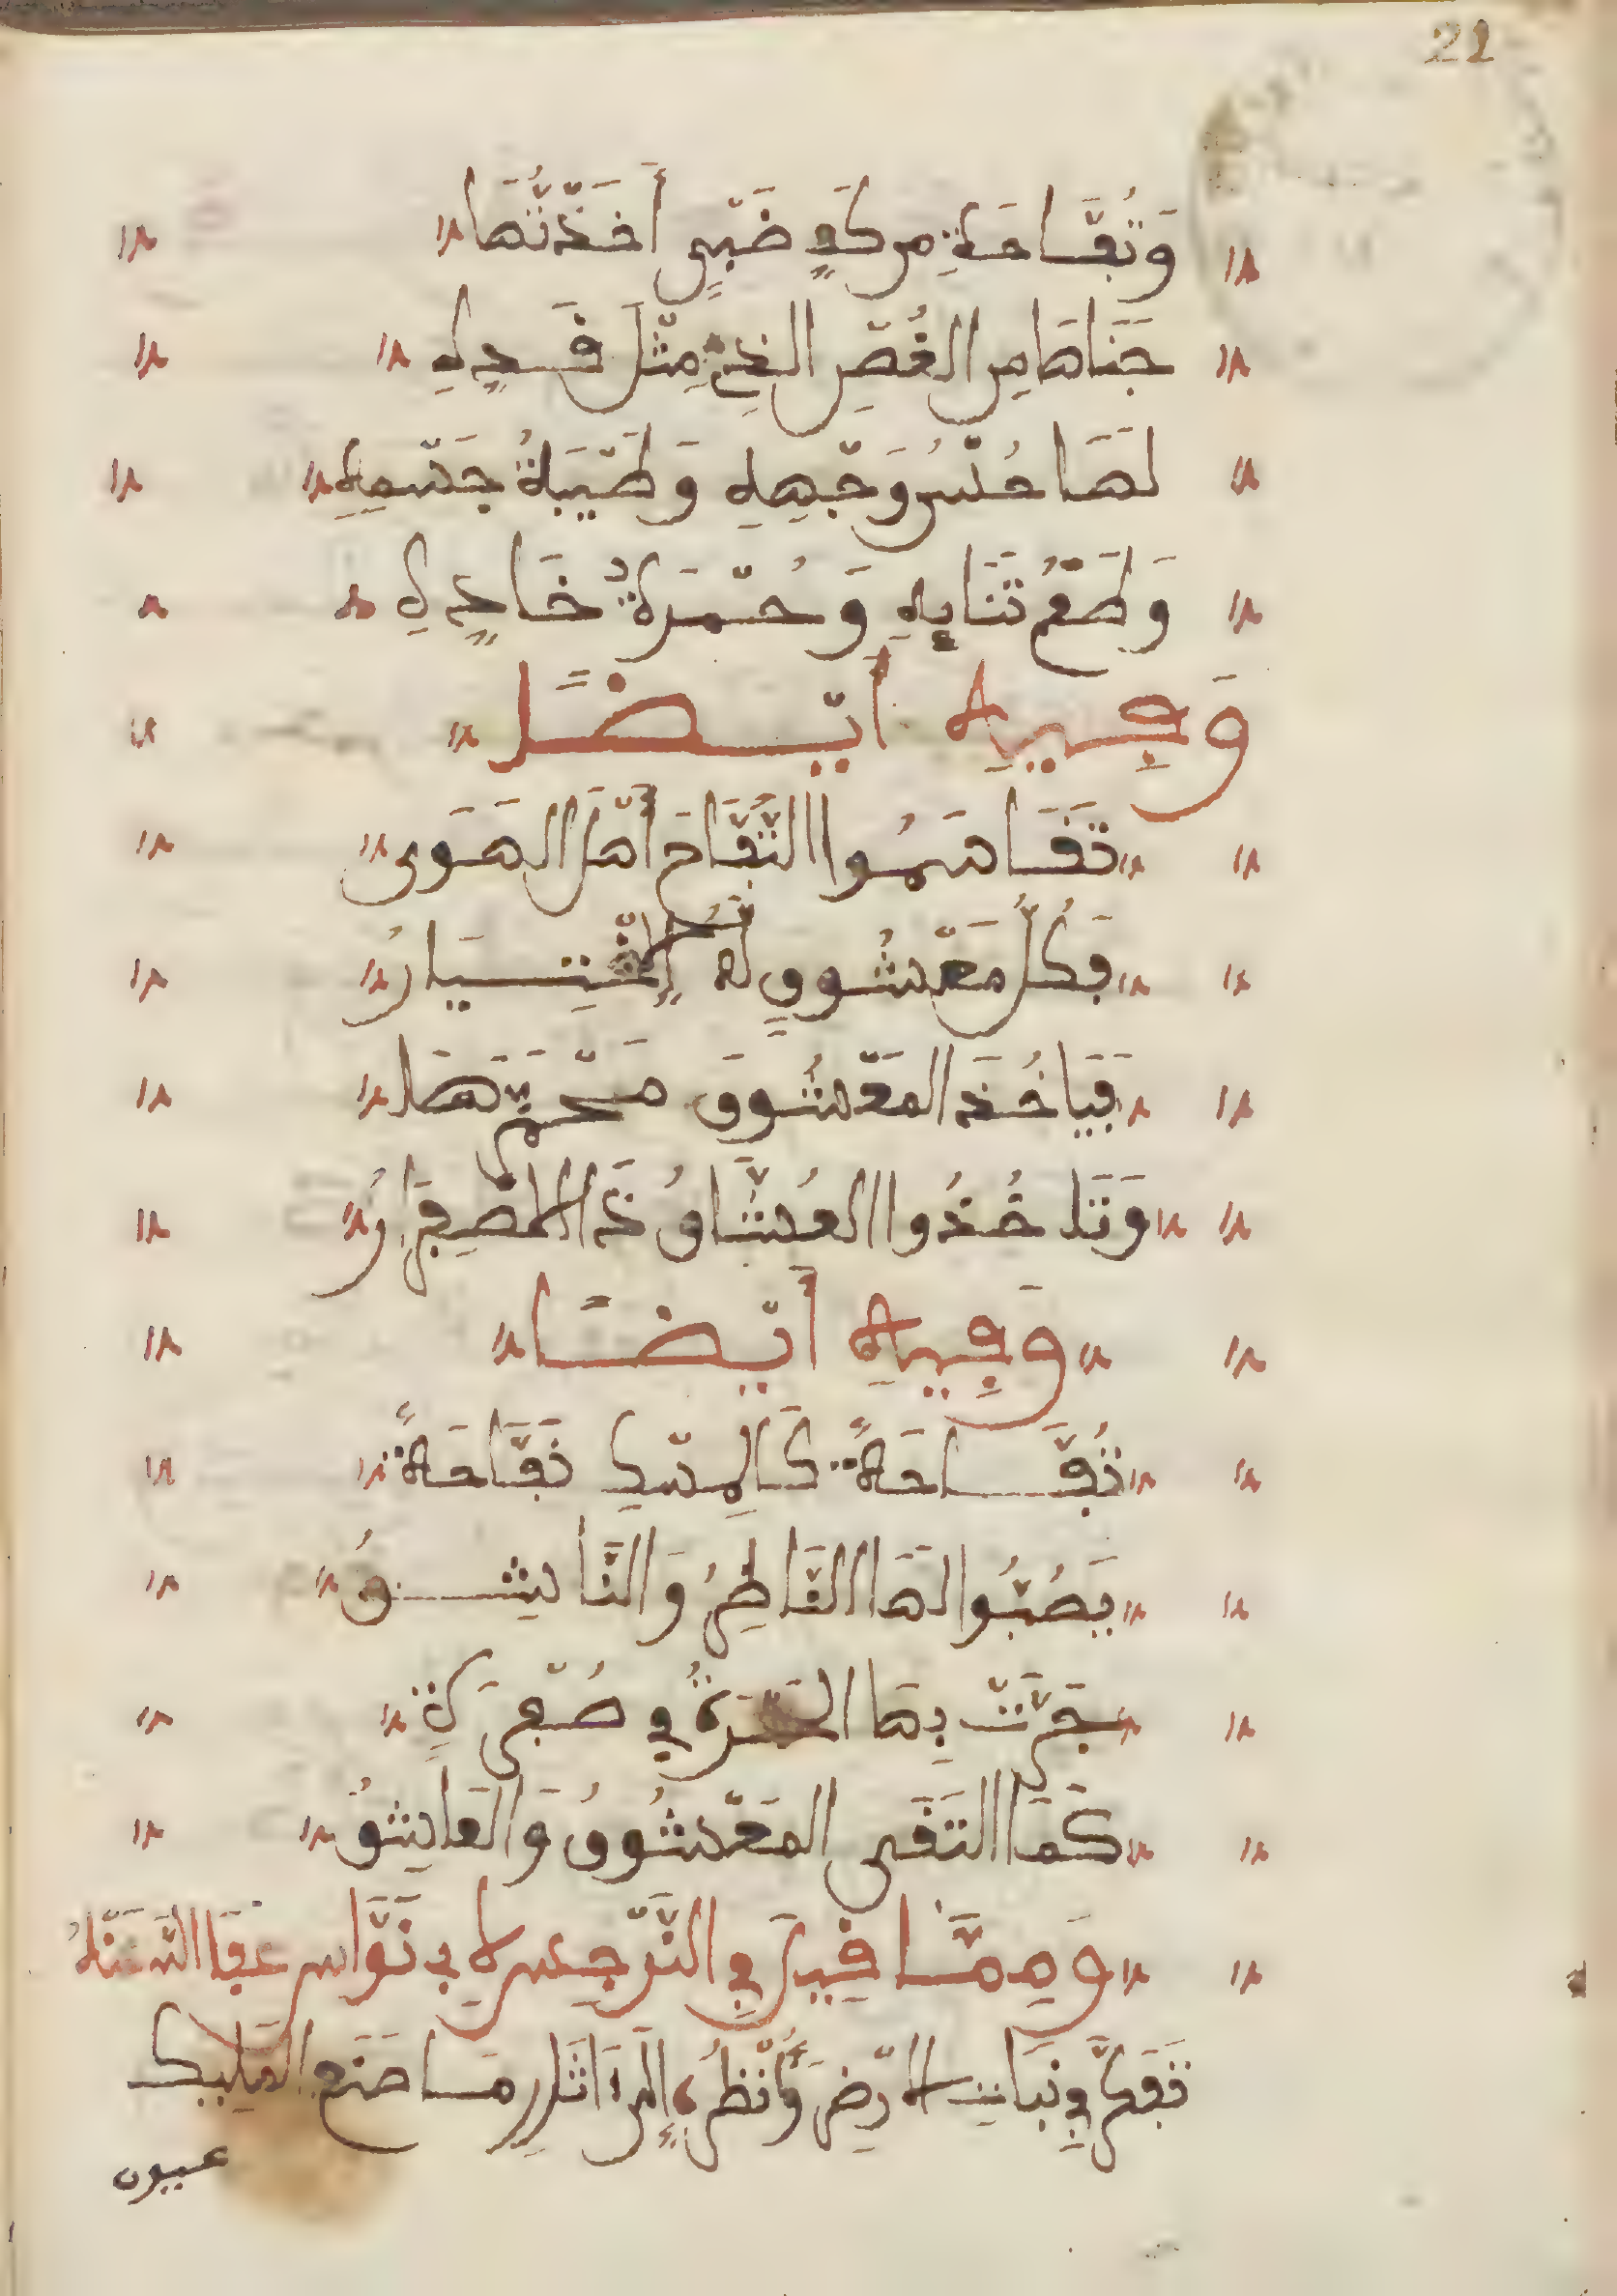 21
وَتُفَّاحَةٍ مِن كَفِّ ضَبْيٍ أَخَذْتُهَا
جَنَاهَا مِنَ الغُصْنِ الذِي مِثْلَ قَدِّهِ
لَهَا حُسْنُ وَجْهِهِ وَطِيبَةُ جَسْمِهِ
وَطَعْمُ ثَنَايِهِ وَحُمْرَةُ خَدِّهِ
وَفِيهِ أَيْضًا
تَقَاسَمُوا التُّفَّاحَ أَهْلُ الهَوَى
فَكُلُّ مَعْشُوقٍ لَهُ إِخْتِيَارُ
فَيَاخُذَ المَعْشُوقَ مُحْمَرَّهَا
وَتَاخُذُوا العُشَّاقُ ذَا الاِصْفِرَارُ
وَفِيهِ أَيْضًا
تُفَّاحَةً كَالمِسْكِ نَفَّاحَةً
يَصْبُوا لَهَا النَّاظِرُ وَالنَّاشِقُ
جَرَّتْ بِهَا الحُمْرَةُ فِي صُفْرَةٍ
كَمَا التَقَى المَعْشُوقُ وَالعَاشِقُ
وَمِمَّا قِيلَ فِي النَّرْجِسِ لِأَبِي نَوَّاس عَفَا اللَّهُ عَنْهُ
تَفَكَّرْ فِي نَبَاتِ الأَرْضِ وَأنْظُرْ إِلَى آثَارِ مَا صَنَعَ المَلِيكُ
عيون